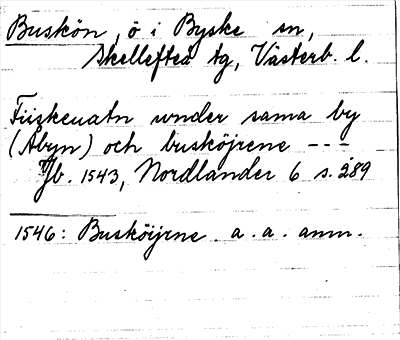 Buskön, ö i Byske sn,
Skellefteå tg, Västerb. l.
Fiiskeuatn wnder sama by
(Åbyn) och busköjrene ---
Jb. 1543, Nordlander 6 s. 289
1546: Busköijrne. a. a. anm.